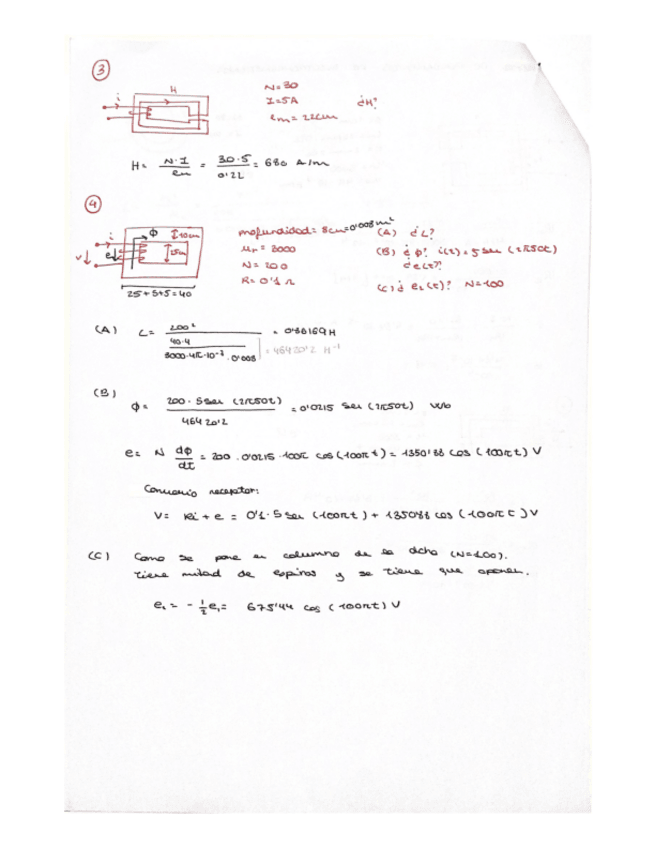 3
H
N=30
i
I=5A
¿H?
lm=22cm
H= N·I / lm = 30·5 / 0'22 = 680 A/m
4
profundidad= 8cm=0'008m²
(A) ¿L?
i
Φ
10cm
μr = 3000
(B) ¿Φ? i(t)=5 sen (2π50t)
v
e
15cm
N= 200
¿e(t)?
R= 0'1 Ω
(C) ¿ e₂(t)? N=100
25+5+5=40
(A) L= 200² / (40·4 / 3000·4π·10⁻⁷·0'008) = 0'86169H
= 46420'2 H⁻¹
(B)
Φ= 200·5sen (2π50t) / 46420'2 = 0'0215 sen (2π50t) Wb
e= N dΦ/dt = 200·0'0215·100π cos(100πt) = 1350'88 cos (100πt) V
Convenio receptor:
V= Ri + e = 0'1·5sen (100πt) + 1350'88 cos (100πt) V
(C) Como se pone en columna de la dcha (N=100).
tiene mitad de espiras y se tiene que oponer.
e₂ = - ½e₁= 675'44 cos (100πt) V